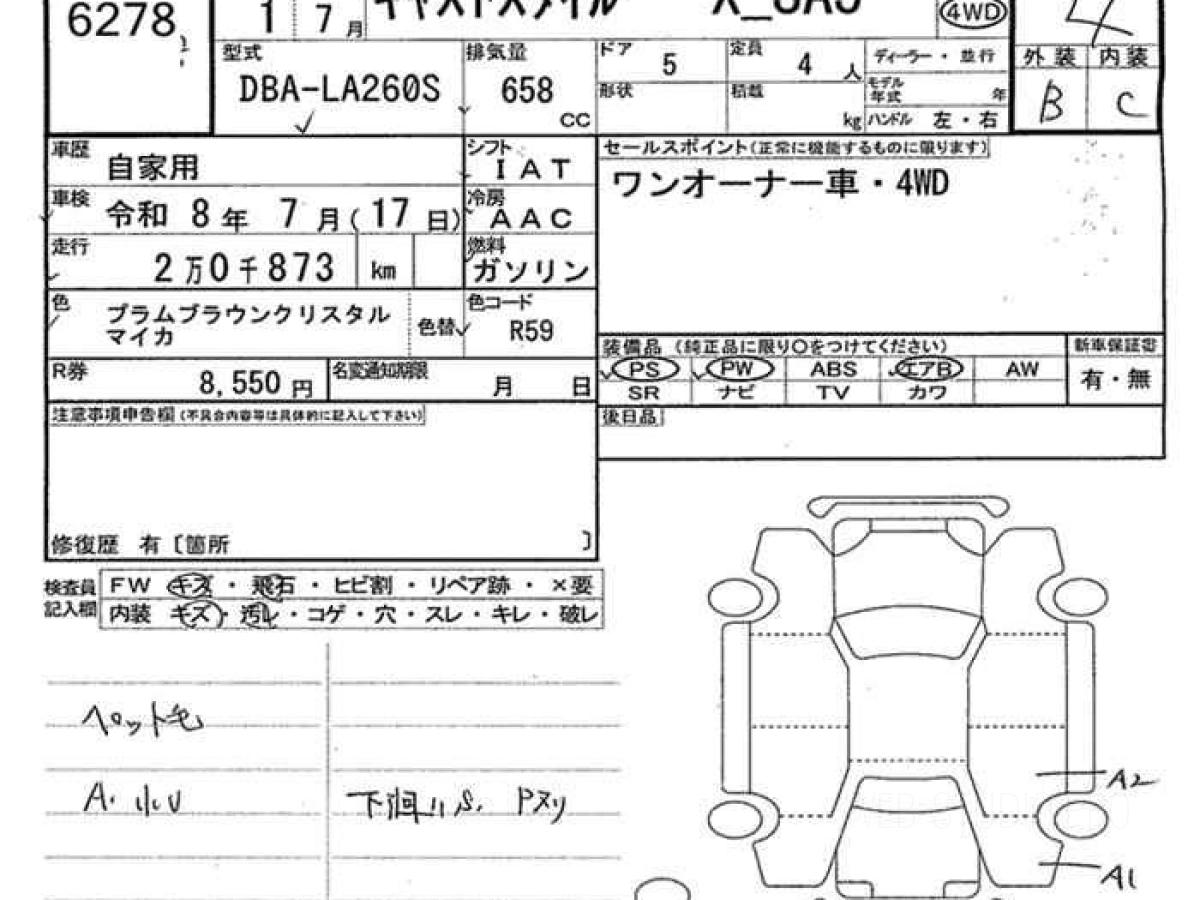 6278
1 7 月
4WD
4
型式
DBA-LA260S
排気量
658
cc
ドア
5
定員
4 人
形状
積載
kg
ディーラー・並行
モデル年式 年
ハンドル 左・右
外装 内装
B C
車歴
自家用
シフト
IAT
車検
令和 8年 7月(17日)
冷房
AAC
走行
2万0千873 km
燃料
ガソリン
色
プラムブラウンクリスタル
マイカ
色替
色コード
R59
R券
8,550 円
名変通知期限
月 日
セールスポイント(正常に機能するものに限ります)
ワンオーナー車・4WD
装備品 (純正品に限り○をつけてください)
PS PW ABS エアB AW
SR ナビ TV カワ
新車保証書
有・無
後日品
注意事項申告欄(不具合内容等は具体的に記入して下さい)
修復歴 有〔箇所 〕
検査員
記入欄
FW キズ・飛石・ヒビ割・リペア跡・×要
内装 キズ・汚レ・コゲ・穴・スレ・キレ・破レ
ペット毛
A. 小U
下廻りS. Pヌリ
A2
A1